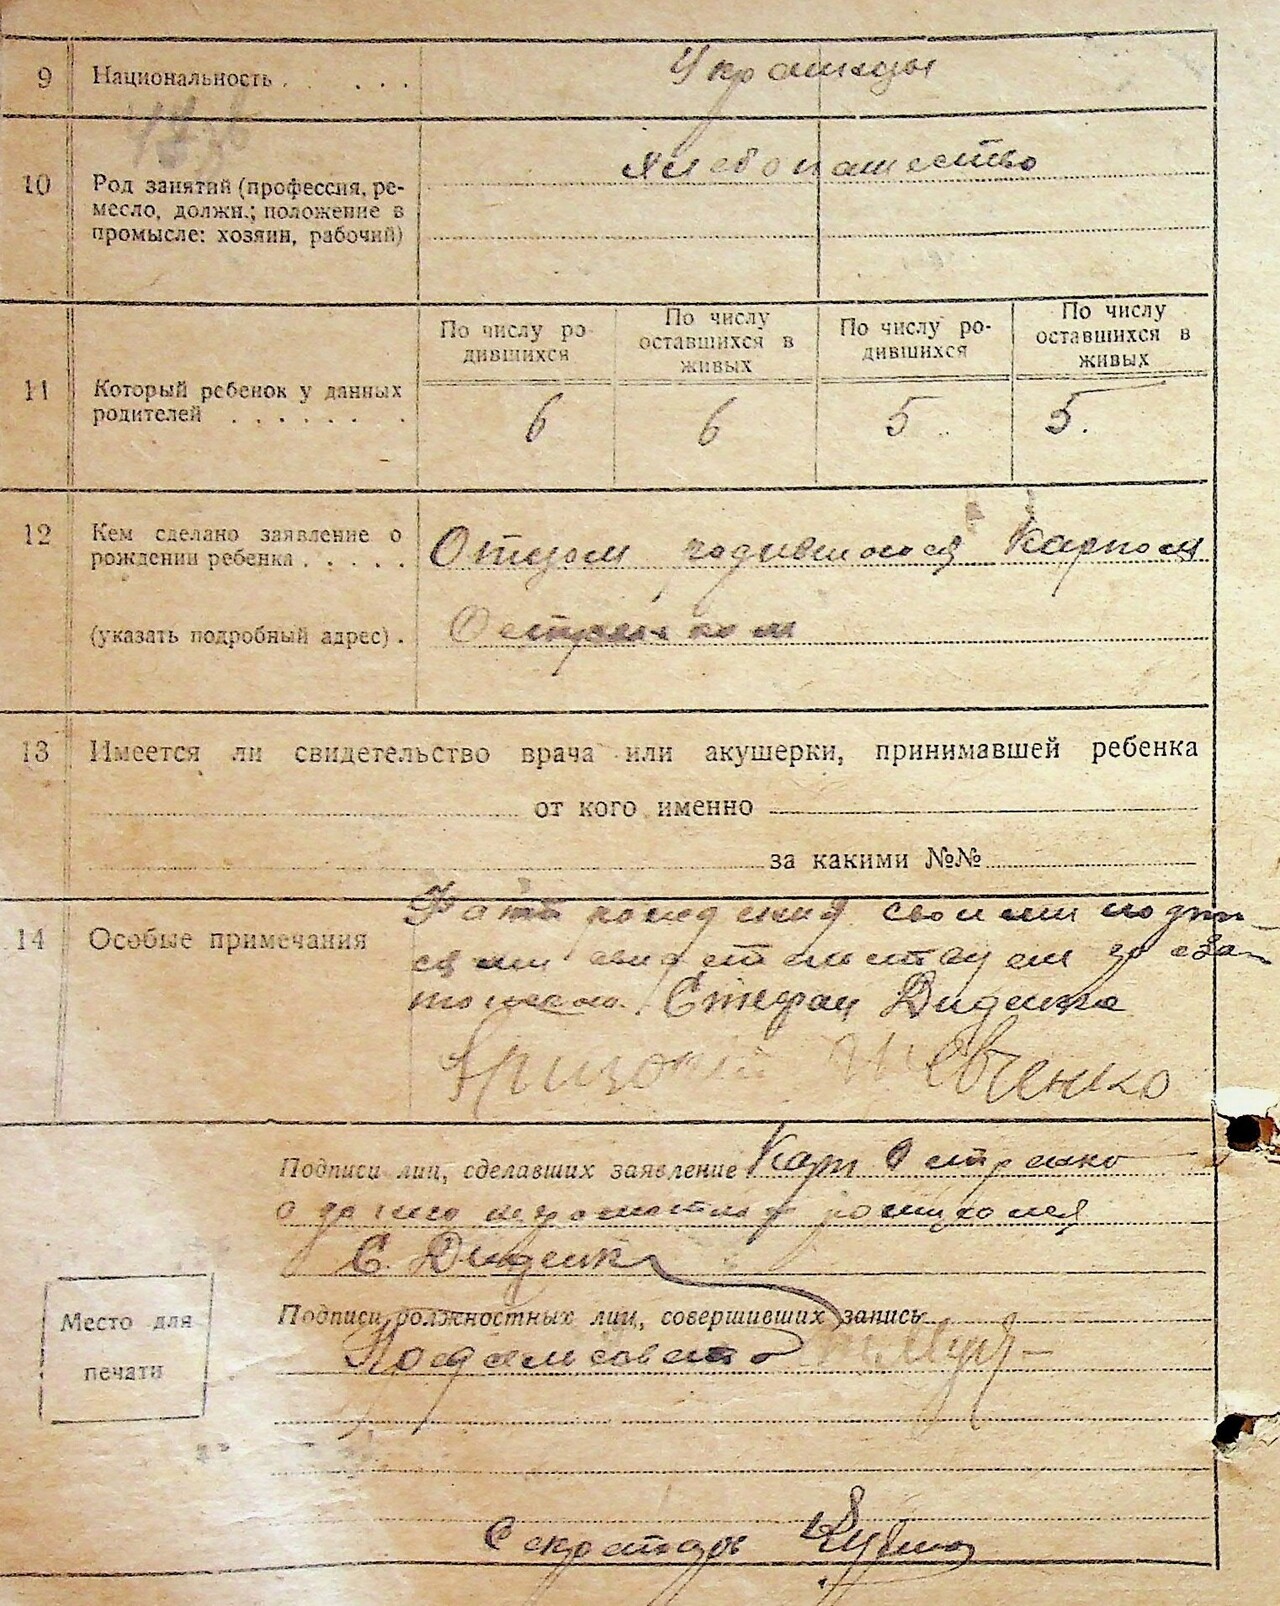 9 Национальность . . . . . Украинцы
10 Род занятий (профессия, ре- Хлебопашество
месло, должн.; положение в
промысле: хозяин, рабочий)
По числу ро-
дившихся
По числу
оставшихся в
живых
По числу ро-
дившихся
По числу
оставшихся в
живых
11 Который ребенок у данных
родителей . . . . . . . 6 6 5 5.
12 Кем сделано заявление о
рождении ребенка . . . . . Отцом родившогося Карпом
(указать подробный адрес) . Остренком
13 Имеется ли свидетельство врача или акушерки, принимавшей ребенка
от кого именно
за какими №№
14 Особые примечания
Факт рождения своими подпи
сями
Стефан Диденко
Шевченко
Подписи лиц, сделавших заявление Карп Остренко
С. Диденко
Подписи должностных лиц, совершивших запись
Место для
печати
Секретарь